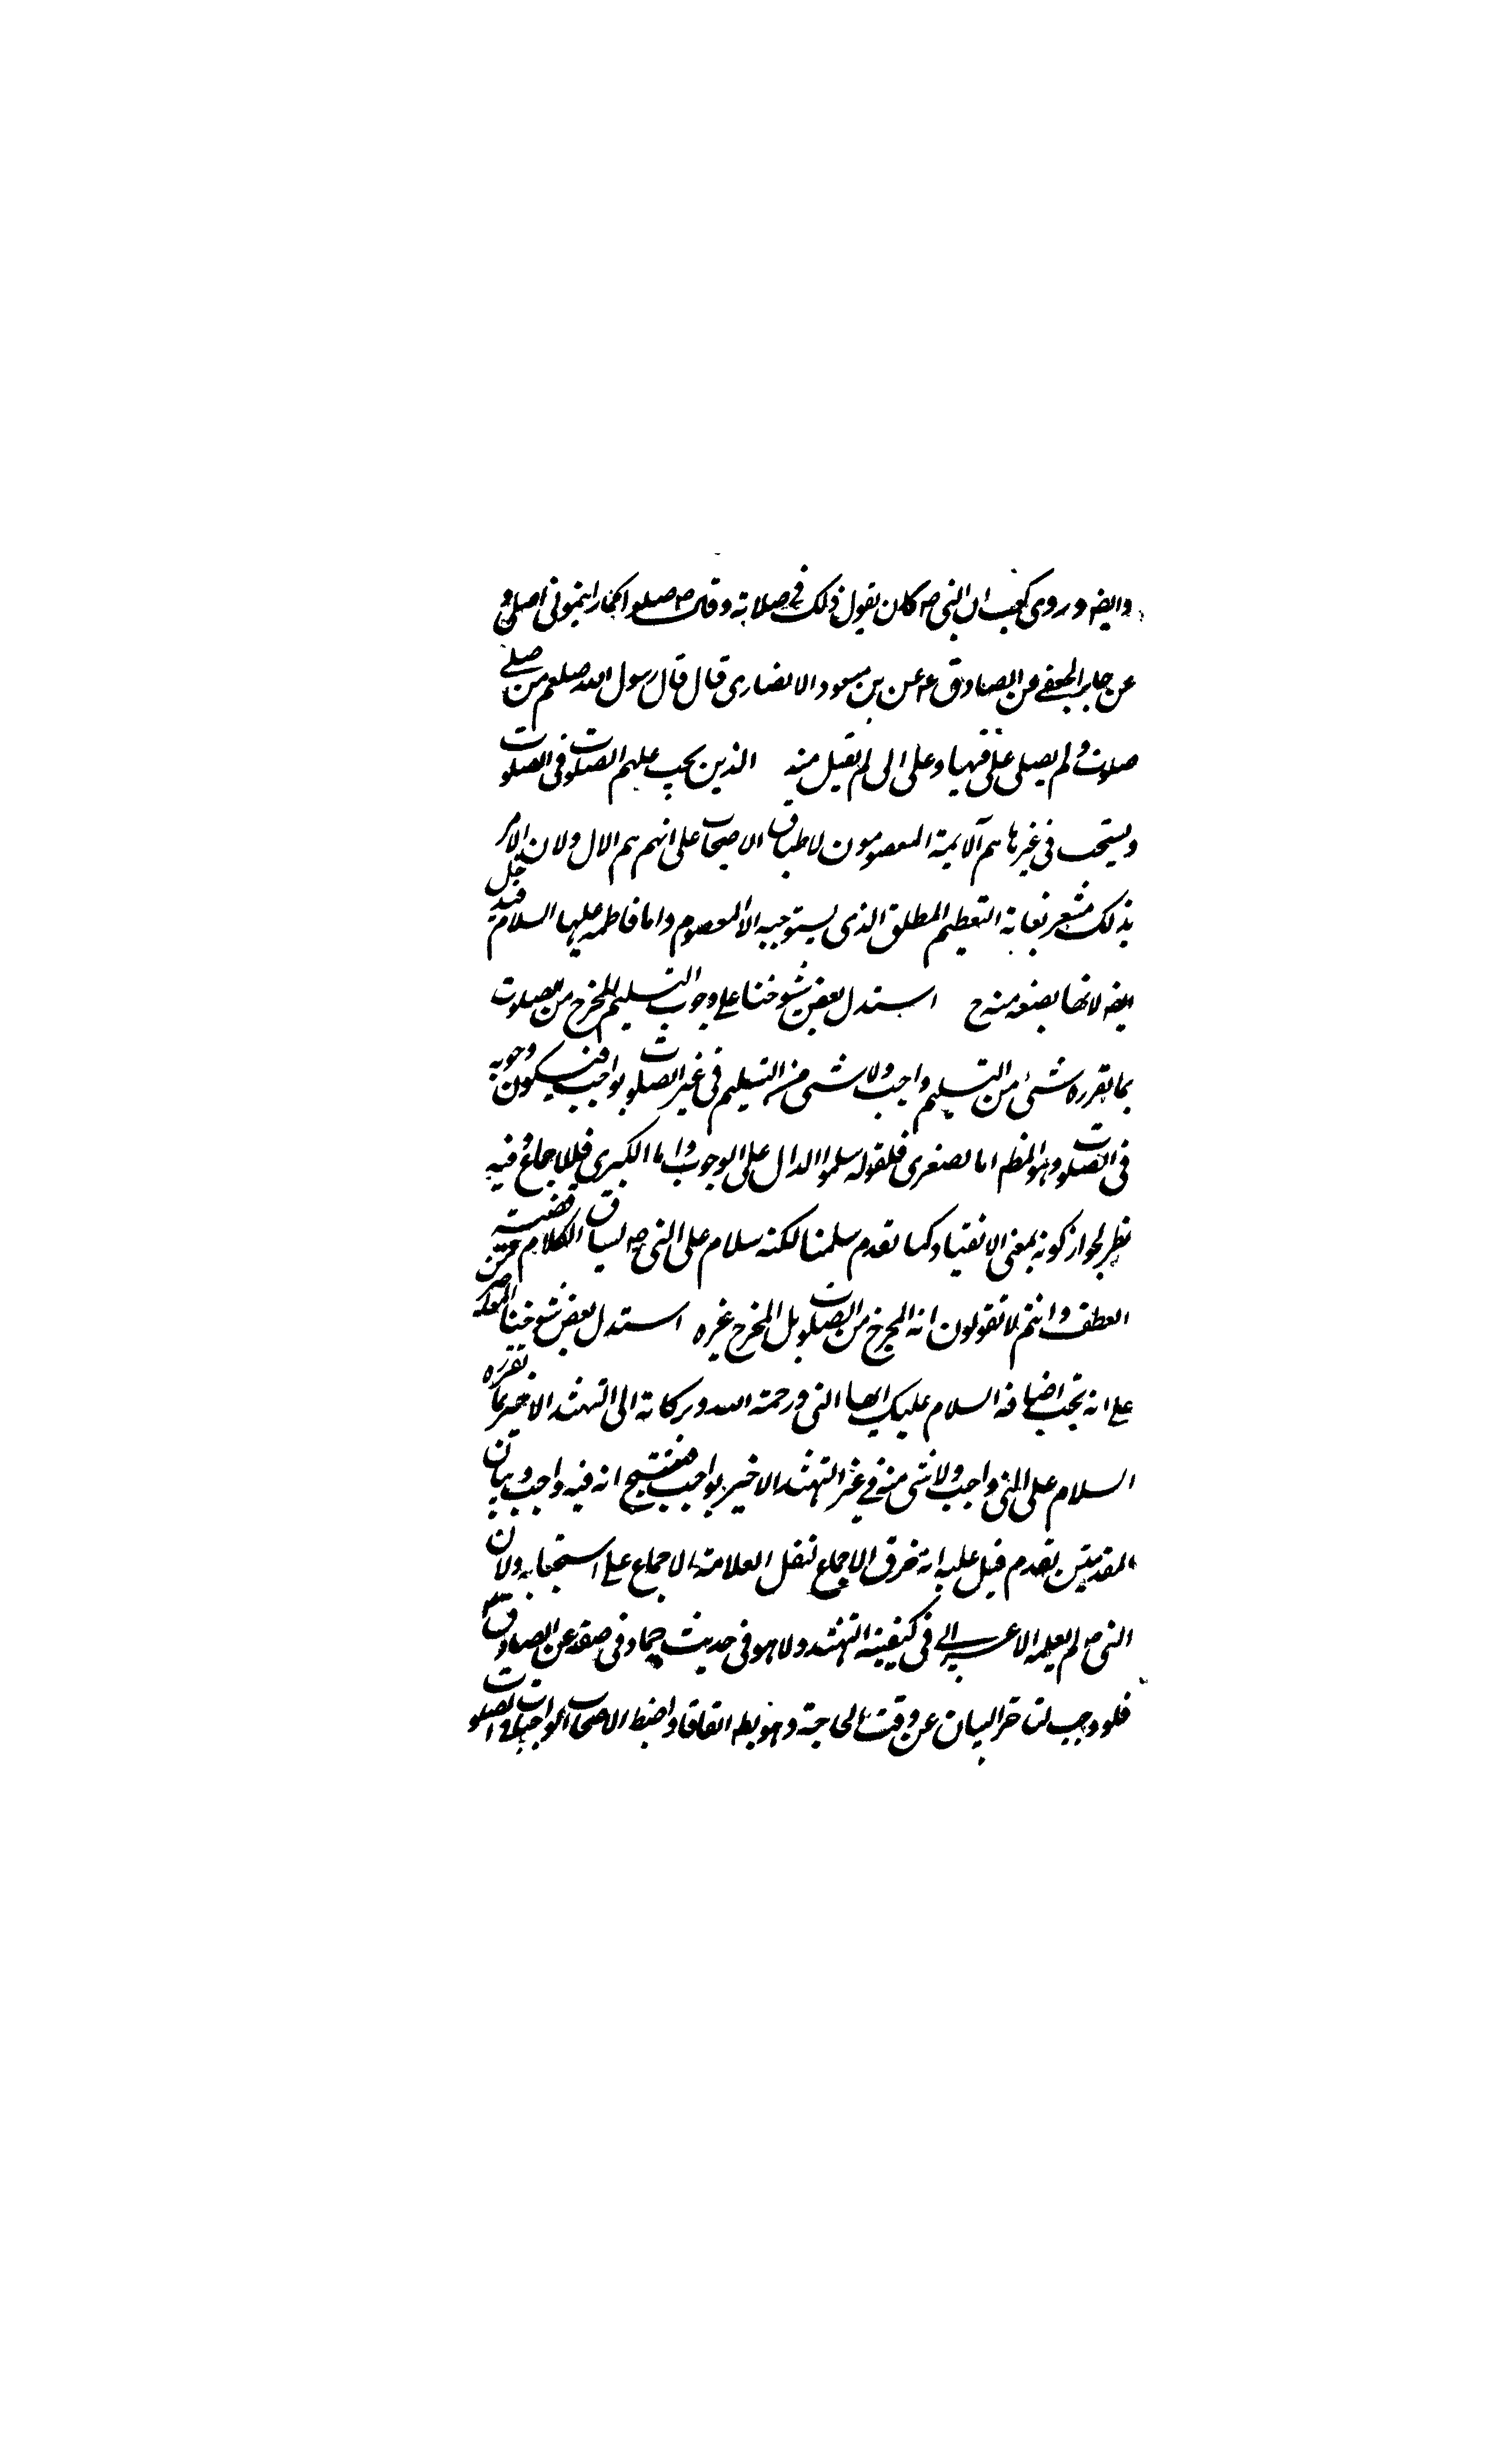 وايضه وروى كعب ان النبى ص كان يقول ذلك فى صلاته وقال ص صلوا كما رايتمونى اصلى و
عن جابر الجعفى عن الصادق ع عن بن مسعود الانصارى قال قال رسول الله صلعم من صلى
صلوت ولم يصلى على فيها وعلى الى لم تقبل منه الذين يجب عليهم الصلوت فى الصلوت
ويستحب فى غيرها هم آلايمة المعصومون لاطباق الاصحاب على انهم هم الال ولان الامر
بذلك مشعر بغاية التعظيم المطلق الذى يستوجبه الا المعصوم واما فاطمه عليها السلام فتدخل
ايضه لانها بضعه منه ح استدل بعض شيوخنا على وجوب التسليم المخرج من الصلوت
بما تقرره شىء من التسليم واجب ولا شىء من التسليم فى غير الصلوت بواجب فيكون وجوبه
فى الصلوت وهو المظم اما لصغرى فلقوله سلموا الدال على الوجوب واما الكبرى فللاجماع وفيه
نظر لجواز كونه بمعنى الانقياد كما تقدم سلمنا لكنه سلام على النبى ص لسياق الكلام وقضية
العطف وانتم لا تقولون انه المخرج من الصلوت بل المخرج غيره استدل بعض شيوخنا
على انه تجب اضافه السلام عليك ايها النبى ورحمة الله وبركاته الى التشهد الاخير بما تقرره
السلام على النبى واجب ولا شى منه فى غير التشهد الاخير بواجب فينتج انه فيه واجب وبيان
المقدمتين تقدم قيل عليه انه خرق الاجماع لنقل العلامة الاجماع على استحبابه ولان
النبى ص لم يعلمه الاعرابى فى كيفية التشهد ولا هو فى حديث حماد فى صفة عن الصادق
فلو وجب لتاخر البيان عن وقت الحاجة وهو بط اتفاقا واضبط الاصحاب لواجبات الصلوت